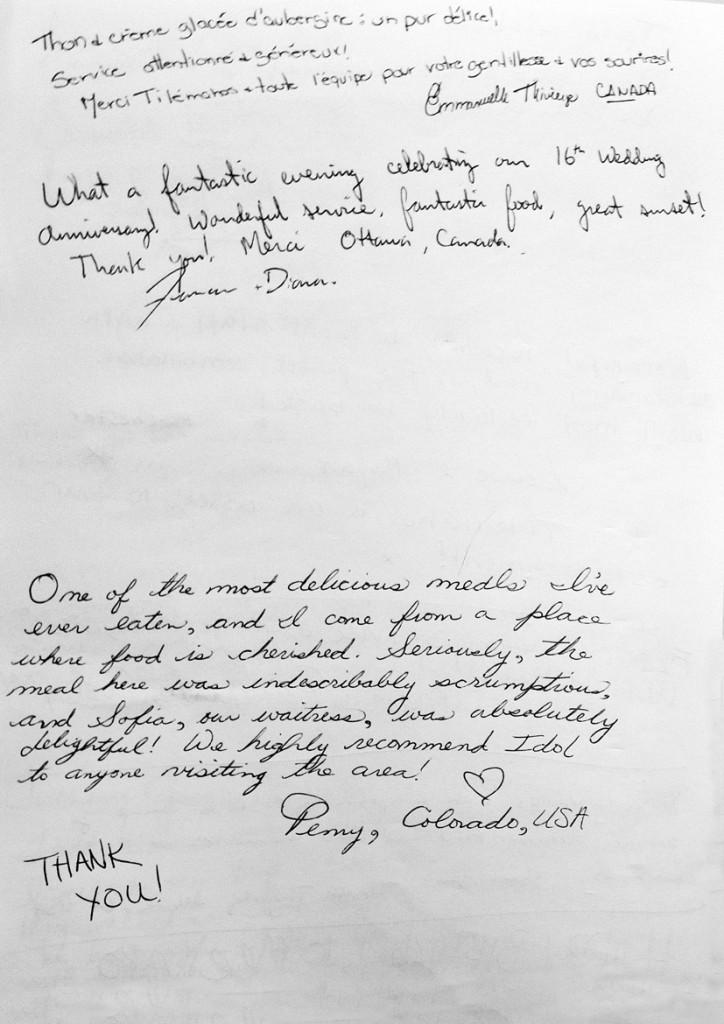 Thon & crème glacée d'aubergine : un pur délice!
Service attentionné & généreux!
Merci Tilémaros & toute l'équipe pour votre gentillesse & vos sourires!
Emmanuelle CANADA
What a fantastic evening celebrating our 16th Wedding
anniversary! Wonderful service, fantastic food, great sunset!
Thank you! Merci Ottawa, Canada.
+ Diana.
One of the most delicious meals I've
ever eaten, and I come from a place
where food is cherished. Seriously, the
meal here was indescribably scrumptious,
and Sofia, our waitress, was absolutely
delightful! We highly recommend Idol
to anyone visiting the area!
Penny, Colorado, USA
THANK
YOU!